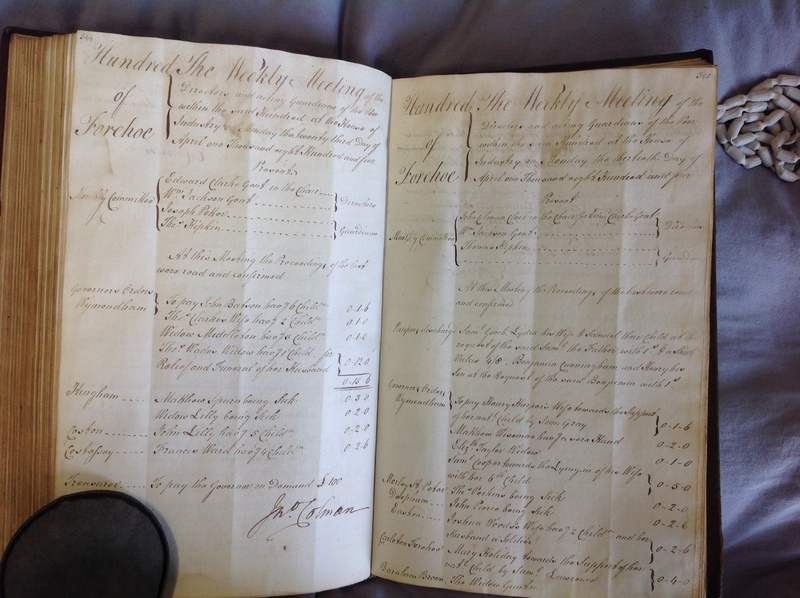 344
Hundred of Forehoe
The Weekly Meeting of the
Directors and acting Guardians of the Poor
within the said Hundred at the House of
Industry on Monday the twenty third Day of
April one Thousand eight Hundred and four
Present
Monthly Committee
Edward Clarke Gent in the Chair
Wm Jackson Gent
Directors
Joseph
Thos Hipkin
Guardians
At this Meeting the Proceedings of the last
were read and confirmed
Governors Orders
Wymondham
To pay John Batson hav'g 6 Childn 0-1-6
Thos Clarkes Wife hav'g 2 Childn 0-1-0
Widow hav'g Childn 0-1-0
Thos Wades Widow hav'g 1 Child for
Relief and Funeral of her Husband 0-12-0
0-15-6
Hingham Matthew Spran being Sick 0-3-0
Widow Lilly being Sick 0-2-0
Coston John Lilly hav'g 5 Childn 0-2-0
Costessey Francis Ward hav'g 4 Childn 0-2-6
Treasurer To pay the Governor on Demand £100
Jno Colman
345
Hundred of Forehoe
The Weekly Meeting of the
Directors and acting Guardians of the Poor
within the said Hundred at the House of
Industry on Monday the thirtieth Day of
April one Thousand eight Hundred and four
Present
Monthly Committee
John Clerk in the Chair for Edwd Clarke Gent
Wm Jackson Gent
Directors
Thomas Hipkin
Guardians
At this Meeting the Proceedings of the last were read
and confirmed
Paupers discharg'd Saml Cock & Lydia his Wife & Samuel their Child at the
request of the said Saml the Father with 1s & a Shift
Value 4/8. Benjamin Cunningham and Henry his
Son at the Request of the said Benjamin with 1s
Governors Orders
Wymondham
To pay Henry Harpers Wife towards the Support
of her natl Child by John Gray 0-1-6
Matthew Wiseman hav'g a sore Hand 0-2-0
Elizth Taylor Widow 0-1-0
Saml Cooper towards the Lying in of his Wife
with her 6th Child 0-5-0
Morley St Peter Thos Perkins being Sick 0-2-0
Deopham John Pierce being Sick 0-2-6
Easton Joshua Woods Wife hav'g 2 Childn and her
Husband a Soldier 0-2-6
Carleton Forehoe Mary Holiday towards the Support of her
natl Child by Saml Lawrence 0-4-0
Barnham Broom The Widow Gunton